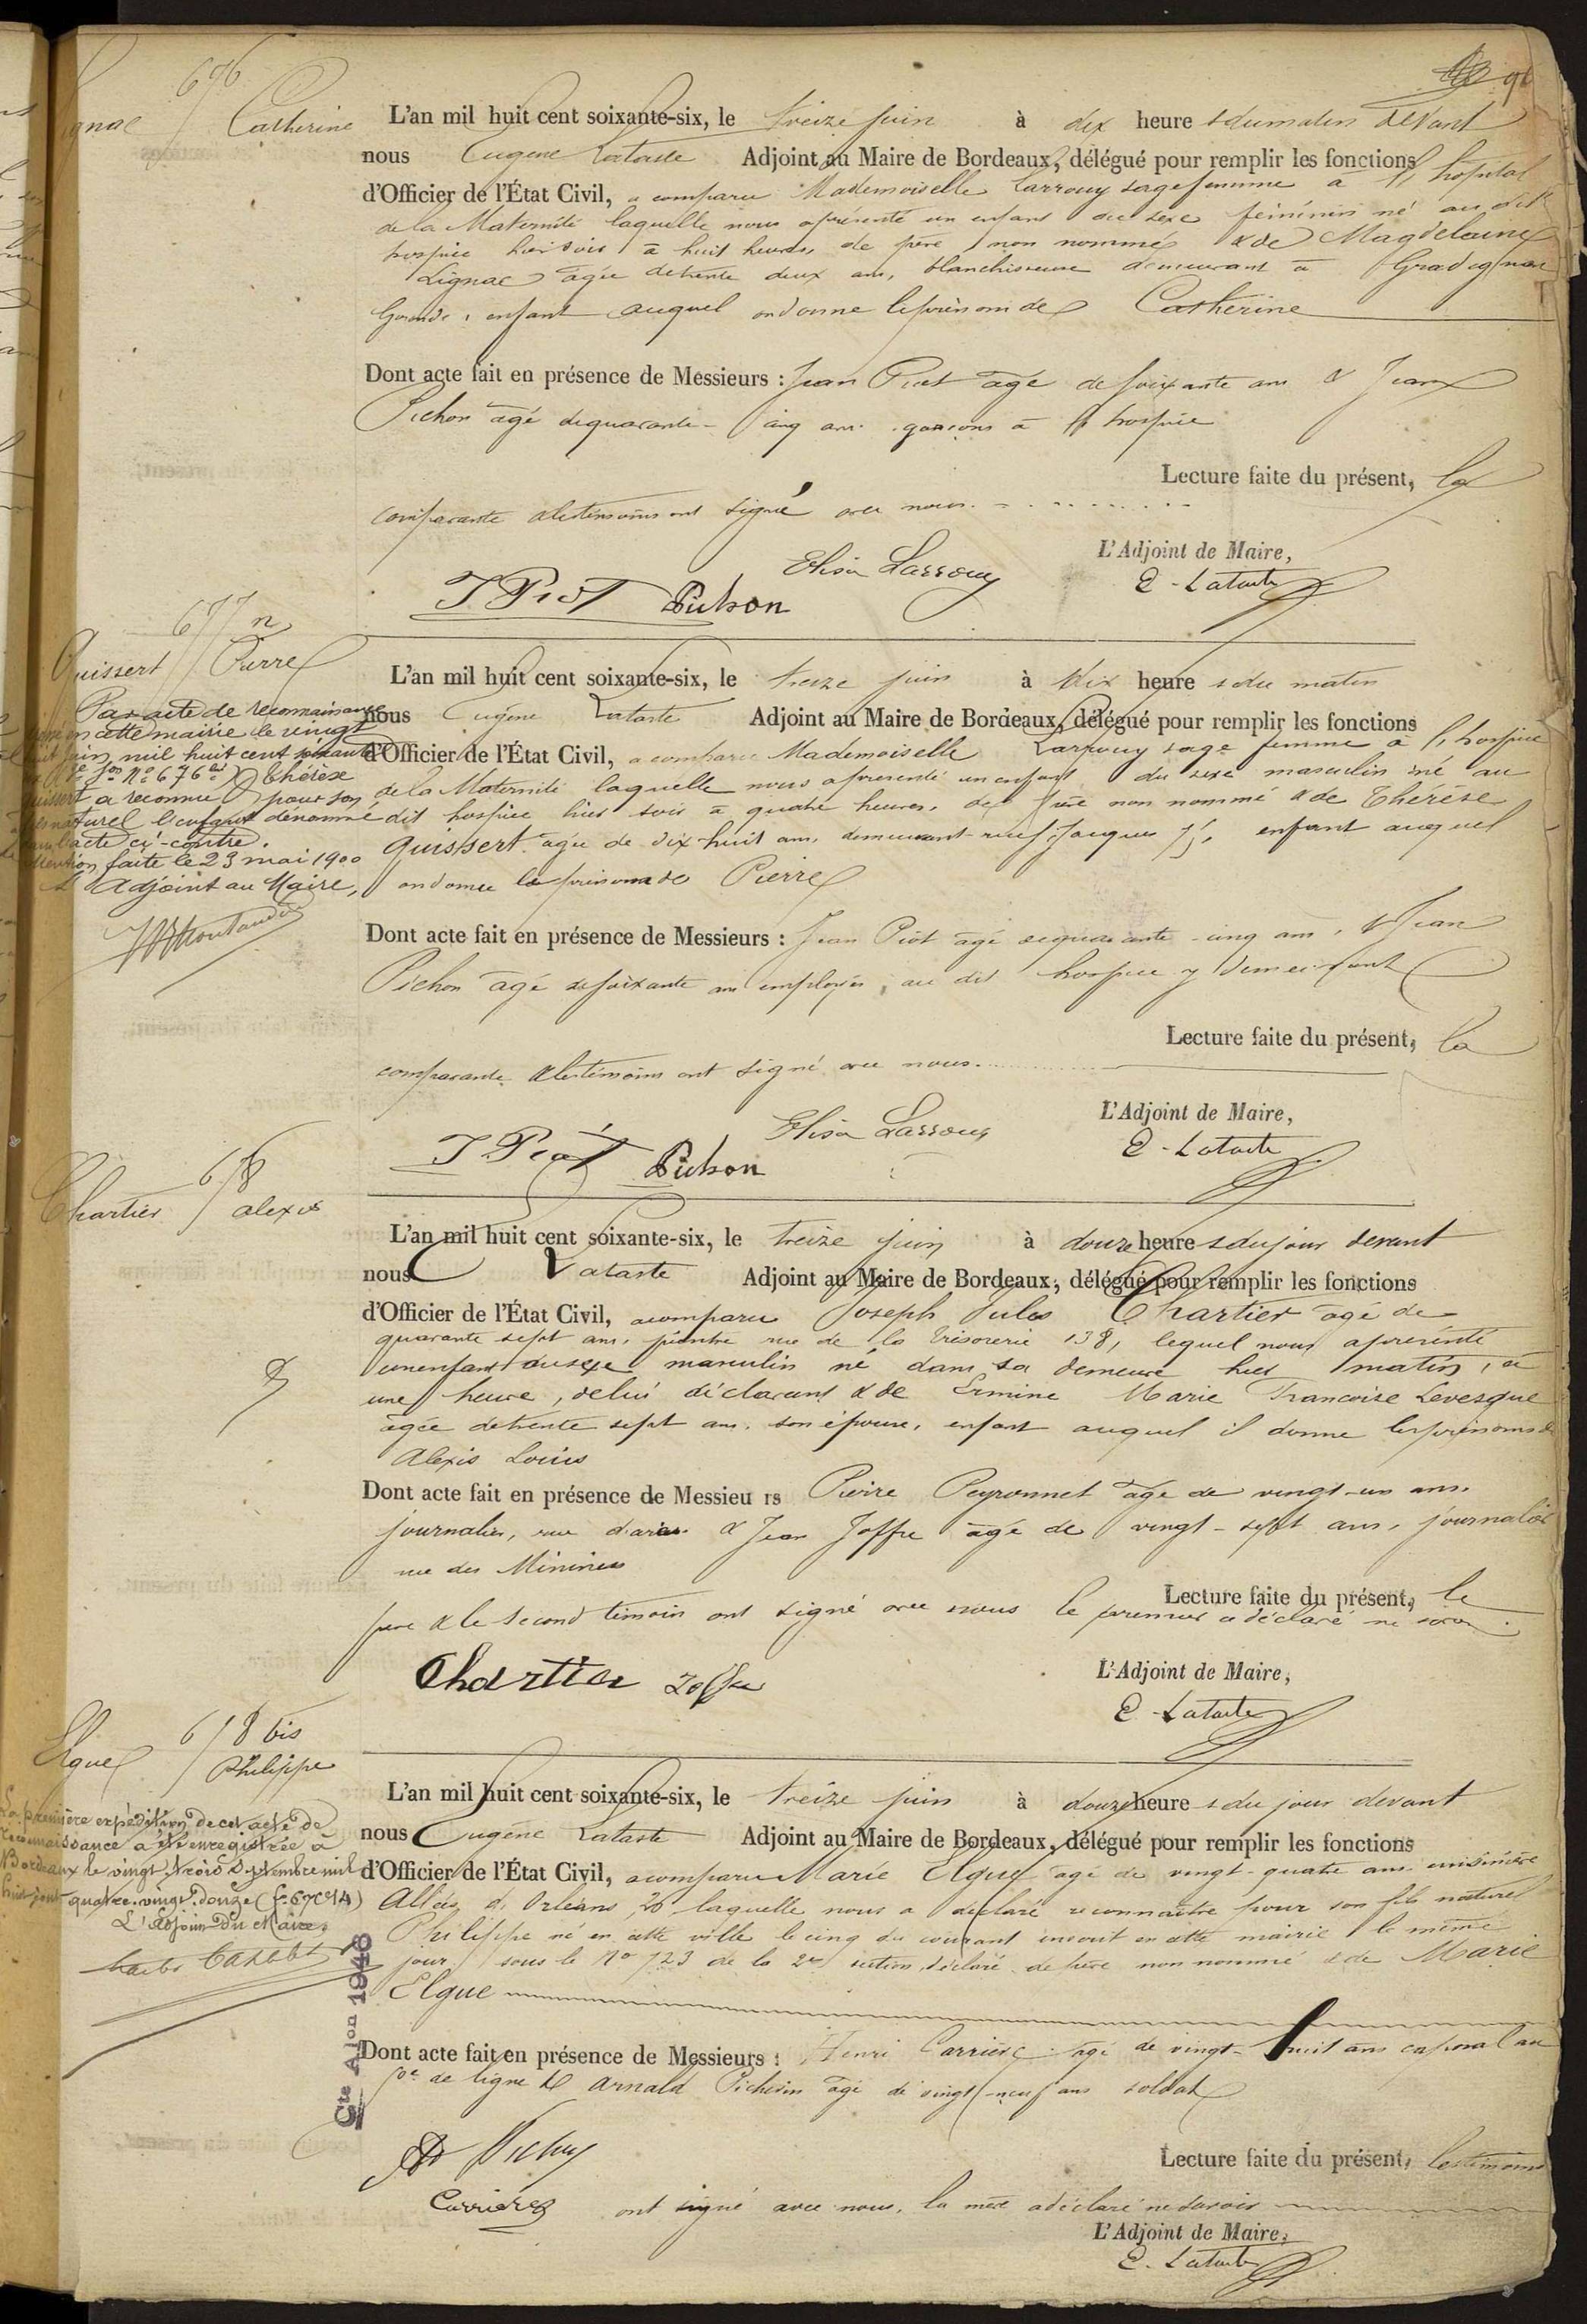 91
676
Lignac Catherine
L'an mil huit cent soixante-six, le treize juin à dix heure s du matin devant
nous Eugène Lataste Adjoint au Maire de Bordeaux, délégué pour remplir les fonctions
d'Officier de l'État Civil, a comparu Mademoiselle Larrouy sage femme à l'hôpital
de la Maternité laquelle nous a présenté un enfant du sexe féminin né au dit
hospice hier soir à huit heures, de père non nommé & de Magdelaine
Lignac âgée de trente deux ans, blanchisseuse demeurant à Gradignan
Gironde, enfant auquel on donne le prénom de Catherine
Dont acte fait en présence de Messieurs : Jean Piot âgé de soixante ans & Jean
Pichon âgé de quarante-cinq ans garçons à l'hospice
Lecture faite du présent, la
comparante & les témoins ont signé avec nous.
Elisa Larrouy
L'Adjoint de Maire,
J. Piot Pichon E. Lataste
677 n
Quissert Pierre
Par acte de reconnaissance
en cette mairie le vingt
huit juin mil huit cent soixante
Son No 676 Thérèse
Quissert a reconnu pour son
fils naturel l'enfant dénommé
dans l'acte ci-contre.
Mention faite le 23 mai 1900
L'Adjoint au Maire,
L'an mil huit cent soixante-six, le treize juin à dix heure s du matin
nous Eugène Lataste Adjoint au Maire de Bordeaux, délégué pour remplir les fonctions
d'Officier de l'État Civil, a comparu Mademoiselle Larrouy sage femme à l'hospice
de la Maternité laquelle nous a présenté un enfant du sexe masculin né au
dit hospice hier soir à quatre heures, de père non nommé & de Thérèse
Quissert âgée de dix huit ans, demeurant rue St Jacques enfant auquel
on donne le prénom de Pierre
Dont acte fait en présence de Messieurs : Jean Piot âgé de quarante-cinq ans, & Jean
Pichon âgé de soixante ans employés au dit hospice y demeurant
Lecture faite du présent, la
comparante & les témoins ont signé avec nous.
Elisa Larrouy
L'Adjoint de Maire,
J. Piot Pichon E. Lataste
678
Chartier Alexis
L'an mil huit cent soixante-six, le treize juin à douze heure s du jour devant
nous E Lataste Adjoint au Maire de Bordeaux, délégué pour remplir les fonctions
d'Officier de l'État Civil, a comparu Joseph Jules Chartier âgé de
quarante sept ans, peintre rue de la Trésorerie 138, lequel nous a présenté
un enfant du sexe masculin né dans sa demeure hier matin, à
une heure, de lui déclarant & de Ermine Marie Francoise Levesque
âgée de trente sept ans, son épouse, enfant auquel il donne les prénoms de
Alexis Louis
Dont acte fait en présence de Messieurs Pierre Peyronnet âgé de vingt-un ans,
journalier, rue & Jean Joffre âgé de vingt-sept ans, journalier
rue des Minimes
Lecture faite du présent, le
père & le second témoin ont signé avec nous le premier a déclaré ne savoir.
Chartier Joffre
L'Adjoint de Maire,
E. Lataste
678 bis
Elgue Philippe
La première expédition de cet acte de
reconnaissance a été enregistrée à
Bordeaux le vingt trois Septembre mil
huit cent quatre-vingt-douze
L'Adjoint du Maire,
L'an mil huit cent soixante-six, le treize juin à douze heure s du jour devant
nous Eugène Lataste Adjoint au Maire de Bordeaux, délégué pour remplir les fonctions
d'Officier de l'État Civil, a comparu Marie Elgue âgé de vingt-quatre ans cuisinière
Allées d'Orléans, 20 laquelle nous a déclaré reconnaître pour son fils naturel
Philippe né en cette ville le cinq du courant inscrit en cette mairie le même
jour sous le No 723 de la 2e section, déclaré de père non nommé & de Marie
Elgue
Cte Ajon 1946
Dont acte fait en présence de Messieurs : Henri Carrière âgé de vingt-huit ans caporal au
de ligne & Arnald âgé de vingt-neuf ans soldat
Lecture faite du présent, les témoins
Carrière ont signé avec nous, la mère a déclaré ne savoir
L'Adjoint de Maire,
E. Lataste